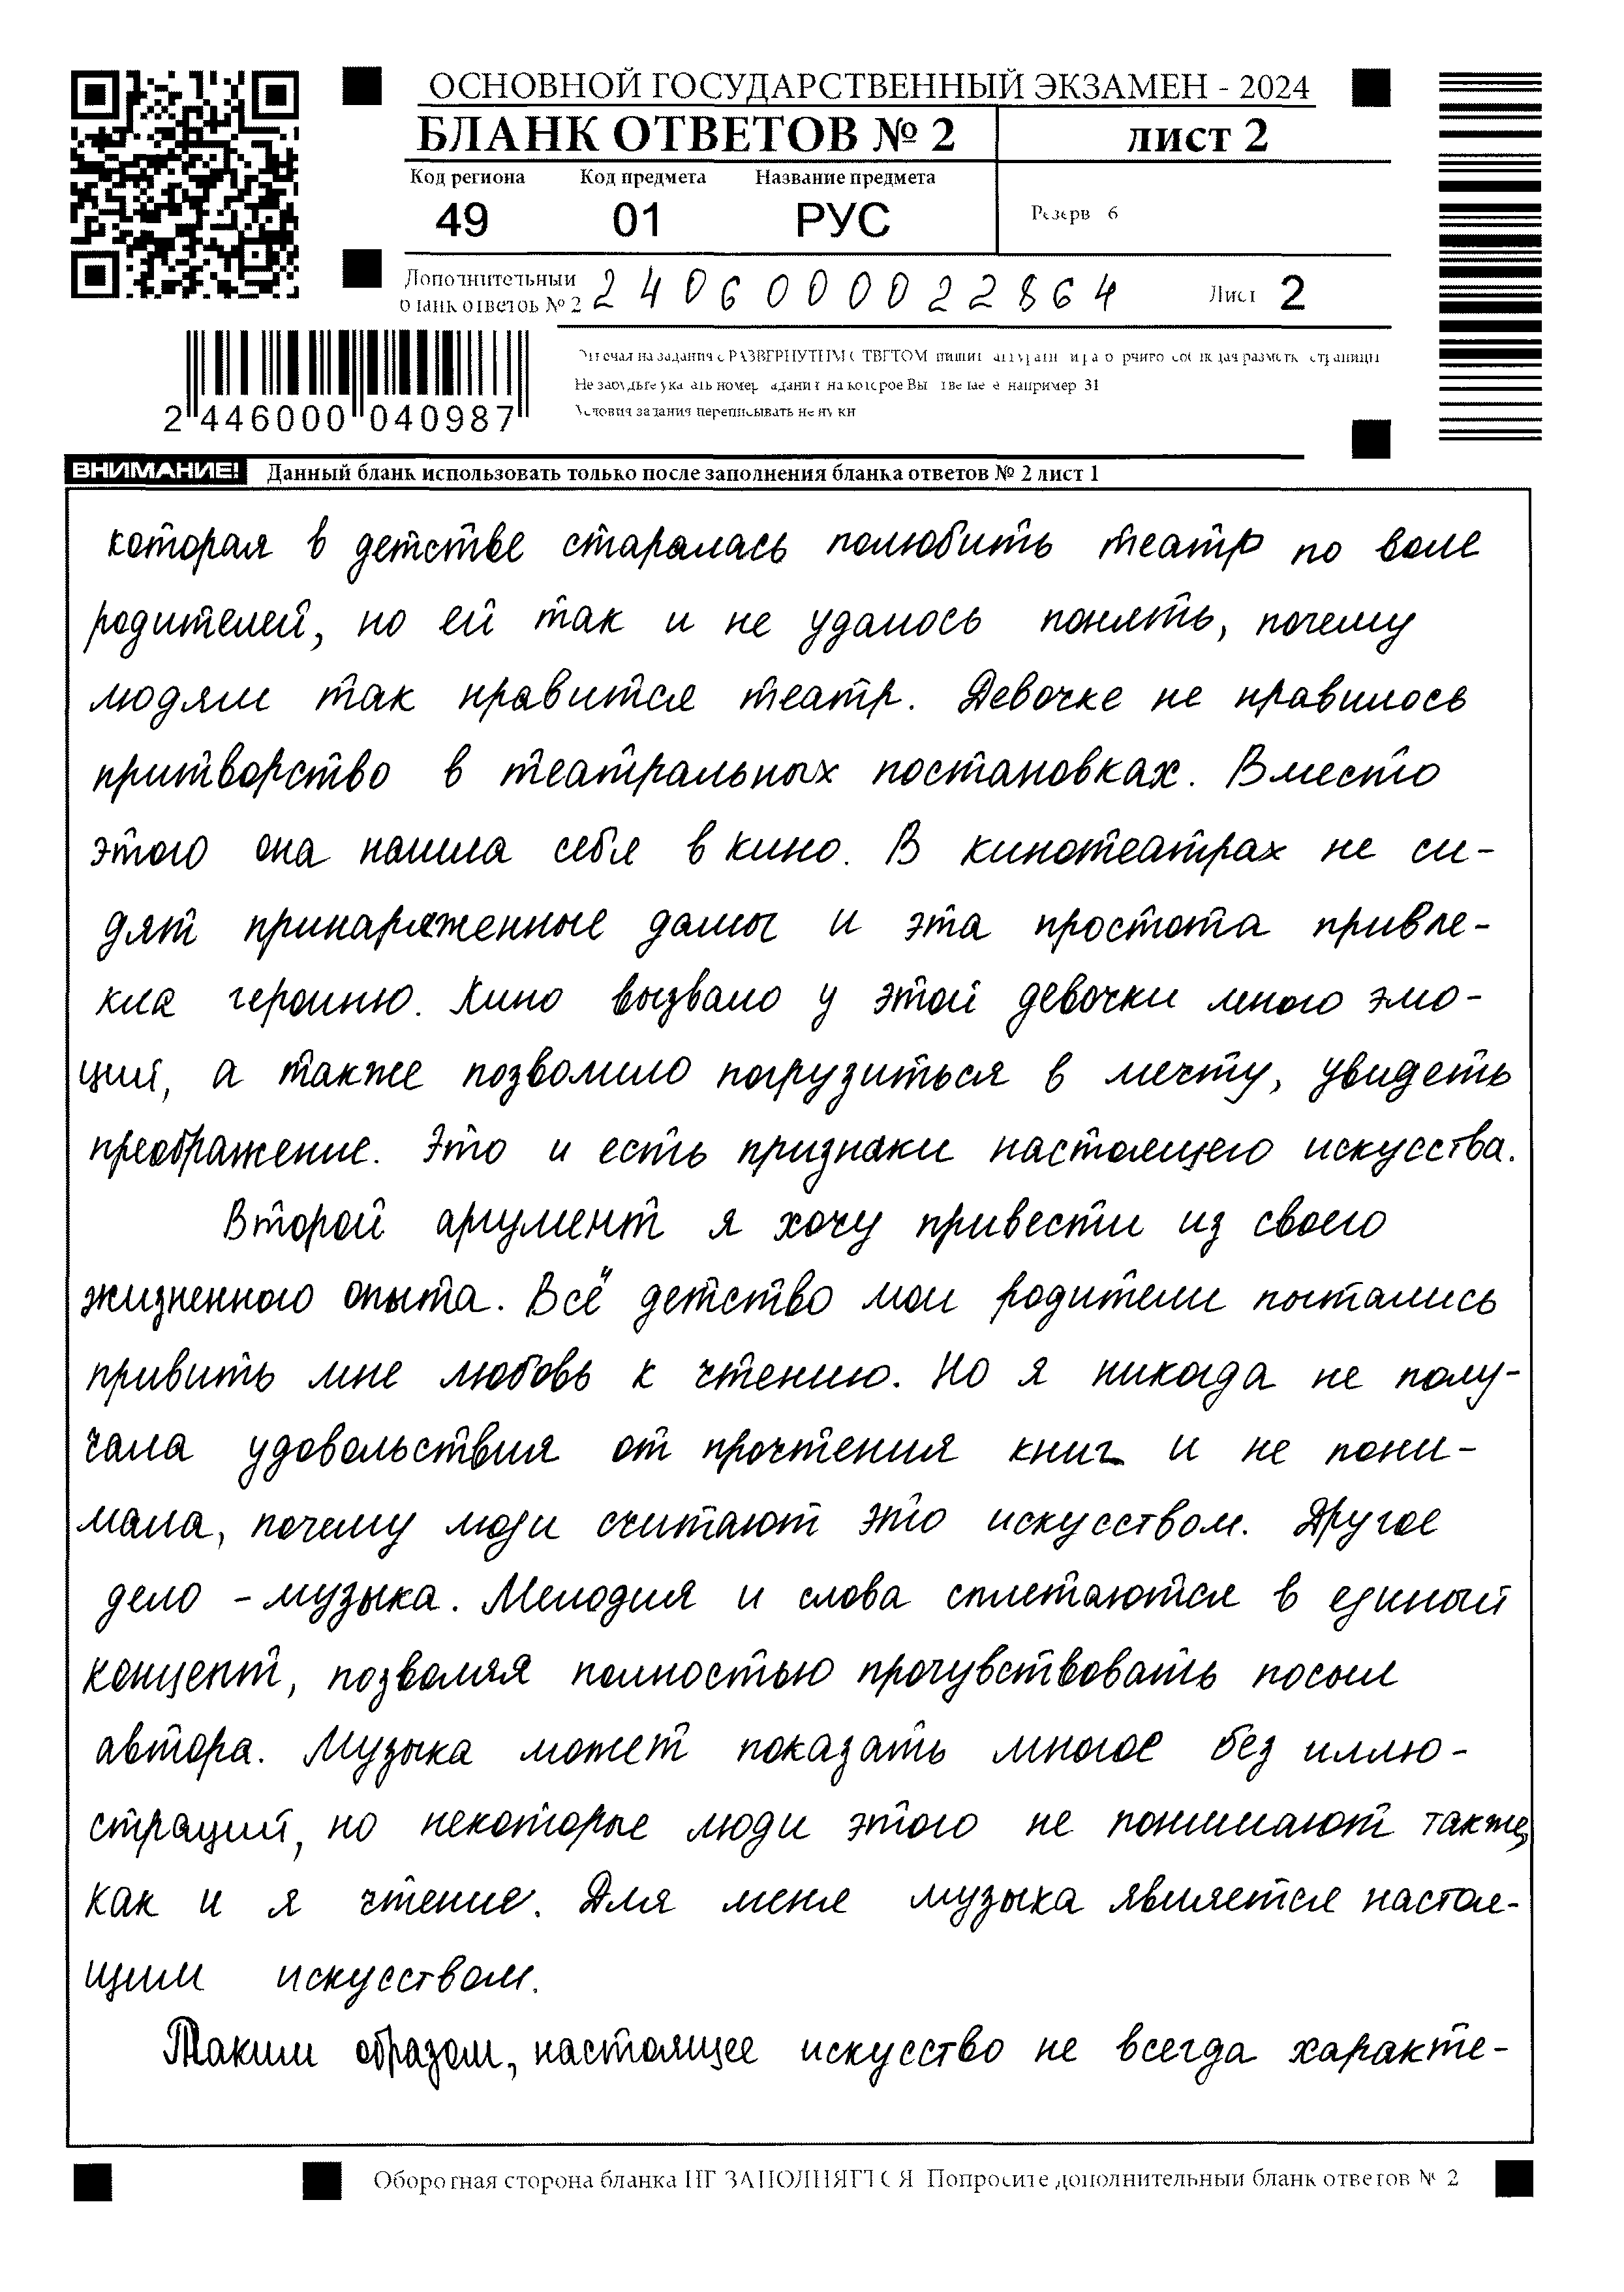 ОСНОВНОЙ ГОСУДАРСТВЕННЫЙ ЭКЗАМЕН - 2024
БЛАНК ОТВЕТОВ № 2
лист 2
Код региона Код предмета Название предмета
49 01 РУС
Резерв 6
Дополнительный
бланк ответов № 2
2406000022864
Лист 2
2 446000 040987
Отвечая на задания с РАЗВЕРНУТЫМ ОТВЕТОМ пишите
Не забудьте указать номер задания на которое Вы отвечаете например 31
Условия задания переписывать не нужно
ВНИМАНИЕ! Данный бланк использовать только после заполнения бланка ответов № 2 лист 1
которая в детстве старалась полюбить театр по воле
родителей, но ей так и не удалось понять, почему
людям так нравится театр. Девочке не нравилось
притворство в театральных постановках. Вместо
этого она нашла себя в кино. В кинотеатрах не си-
дят принаряженные дамы и эта простота привле-
кла героиню. Кино вызвало у этой девочки много эмо-
ций, а также позволило погрузиться в мечту, увидеть
преображение. Это и есть признаки настоящего искусства.
Второй аргумент я хочу привести из своего
жизненного опыта. Всё детство мои родители пытались
привить мне любовь к чтению. Но я никогда не полу-
чала удовольствия от прочтения книг и не пони-
мала, почему люди считают это искусством. Другое
дело - музыка. Мелодия и слова сплетаются в единый
концепт, позволяя полностью прочувствовать посыл
автора. Музыка может показать многое без иллю-
страций, но некоторые люди этого не понимают также,
как и я чтение. Для меня музыка является настоя-
щим искусством.
Таким образом, настоящее искусство не всегда характе-
Оборотная сторона бланка НЕ ЗАПОЛНЯЕТСЯ Попросите дополнительный бланк ответов № 2